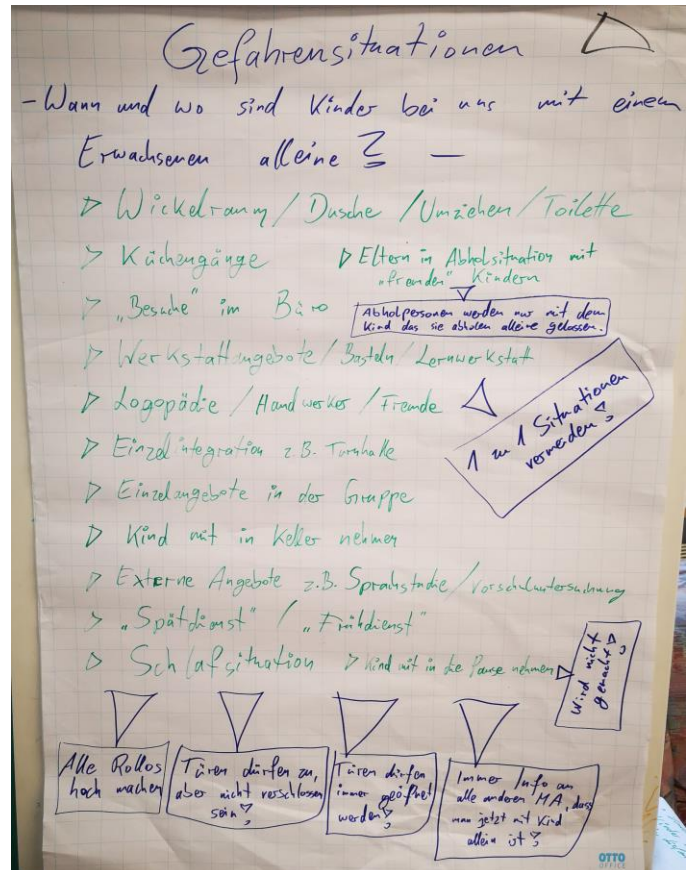 Gefahrensituationen
- Wann und wo sind Kinder bei uns mit einem
Erwachsenen alleine ? -
Wickelraum / Dusche / Umziehen / Toilette
Küchengänge
Eltern in Abholsituation mit
"fremden" Kindern
"Besuche" im Büro
Abholpersonen werden nur mit dem
Kind das sie abholen alleine gelassen.
Werkstattangebote / Basteln / Lernwerkstatt
Logopädie / Handwerker / Fremde
1 zu 1 Situationen
vermeiden !
Einzelintegration z.B. Turnhalle
Einzelangebote in der Gruppe
Kind mit in Keller nehmen
Externe Angebote z.B. Sprachstudie / Vorschuluntersuchung
"Spätdienst" / "Frühdienst"
Schlafsituation
Kind mit in die Pause nehmen
Wird nicht
gemacht !
Alle Rollos
hoch machen
Türen dürfen zu,
aber nicht verschlossen
sein !
Türen dürfen
immer geöffnet
werden !
Immer Info an
alle anderen MA, dass
man jetzt mit Kind
allein ist !
OTTO
OFFICE